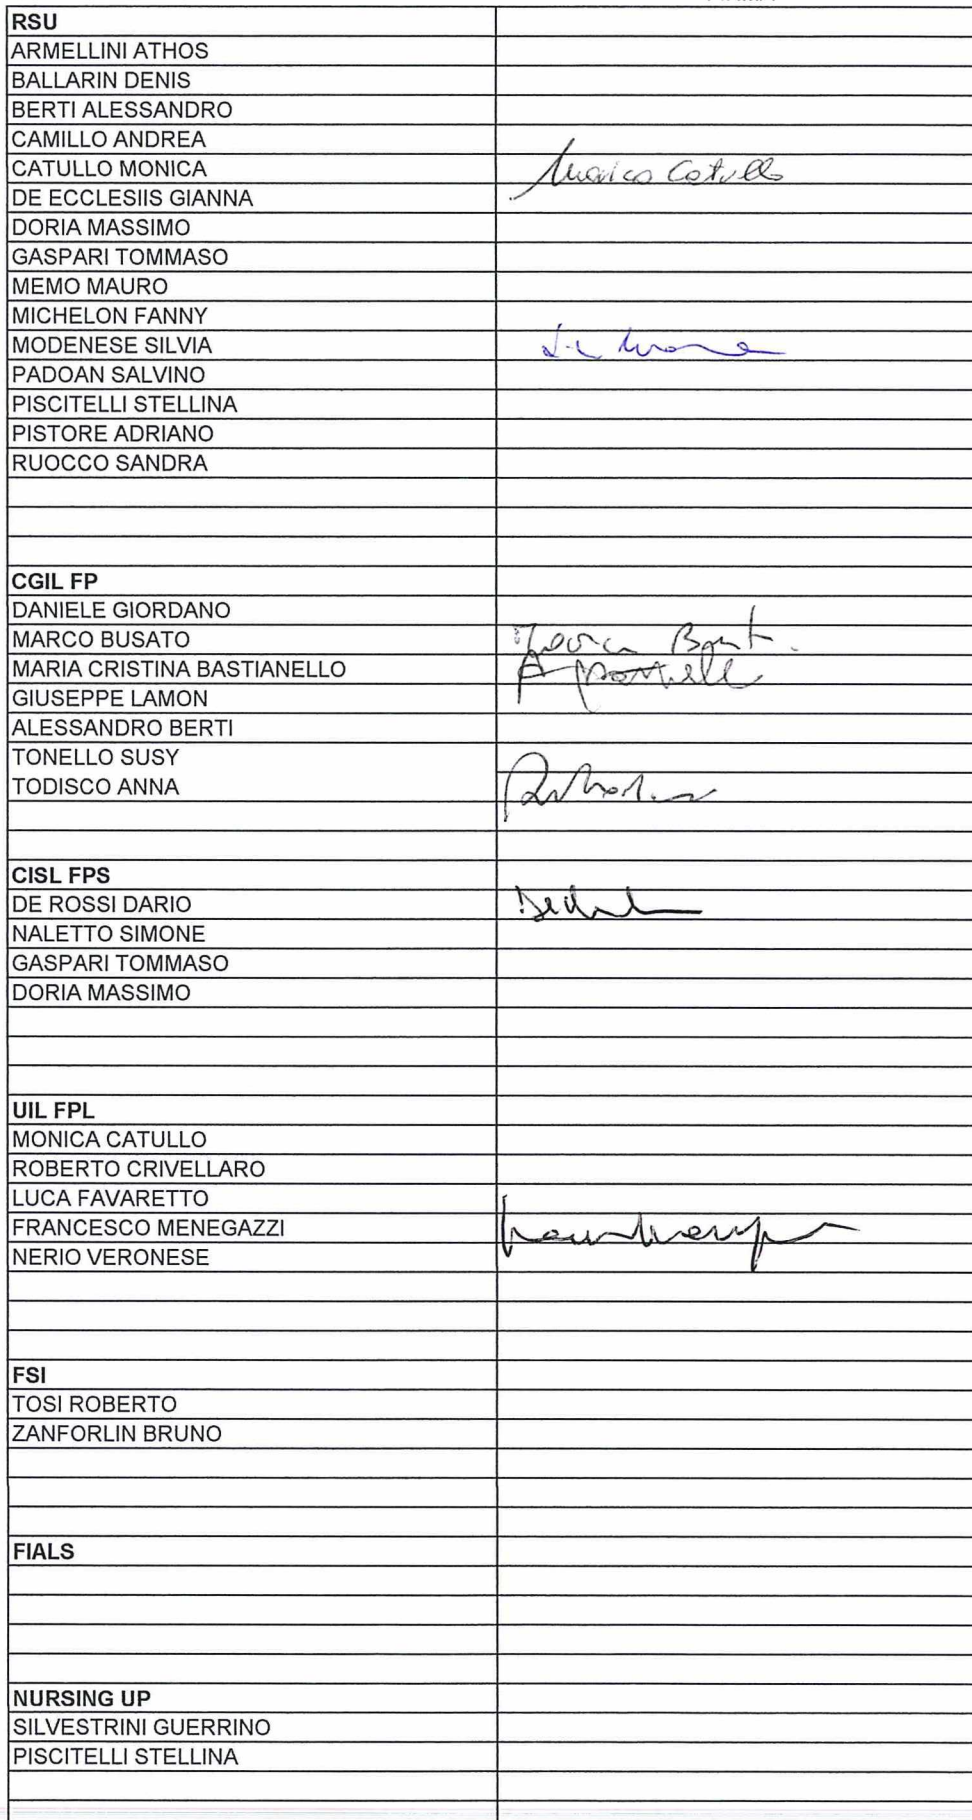 RSU
ARMELLINI ATHOS
BALLARIN DENIS
BERTI ALESSANDRO
CAMILLO ANDREA
CATULLO MONICA Monica Catullo
DE ECCLESIIS GIANNA
DORIA MASSIMO
GASPARI TOMMASO
MEMO MAURO
MICHELON FANNY
MODENESE SILVIA
PADOAN SALVINO
PISCITELLI STELLINA
PISTORE ADRIANO
RUOCCO SANDRA
CGIL FP
DANIELE GIORDANO
MARCO BUSATO
MARIA CRISTINA BASTIANELLO
GIUSEPPE LAMON
ALESSANDRO BERTI
TONELLO SUSY
TODISCO ANNA
CISL FPS
DE ROSSI DARIO
NALETTO SIMONE
GASPARI TOMMASO
DORIA MASSIMO
UIL FPL
MONICA CATULLO
ROBERTO CRIVELLARO
LUCA FAVARETTO
FRANCESCO MENEGAZZI
NERIO VERONESE
FSI
TOSI ROBERTO
ZANFORLIN BRUNO
FIALS
NURSING UP
SILVESTRINI GUERRINO
PISCITELLI STELLINA